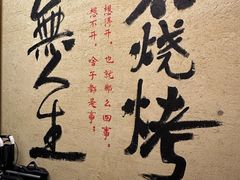 烧烤
想得开，也就那么回事；
想不开，啥子都是事！
無人生